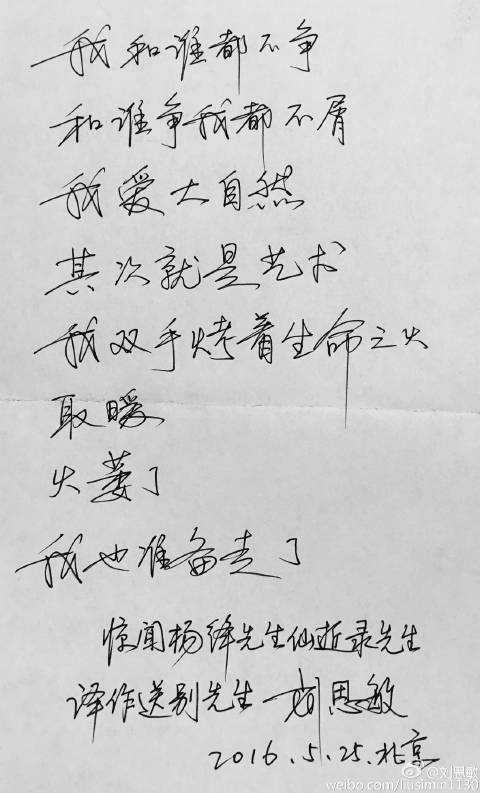 我和谁都不争
和谁争我都不屑
我爱大自然
其次就是艺术
我双手烤着生命之火
取暖
火萎了
我也准备走了
惊闻杨绛先生仙逝录先生
译作送别先生 刘思敏
2016.5.25.北京
@刘思敏
weibo.com/liusimin1130